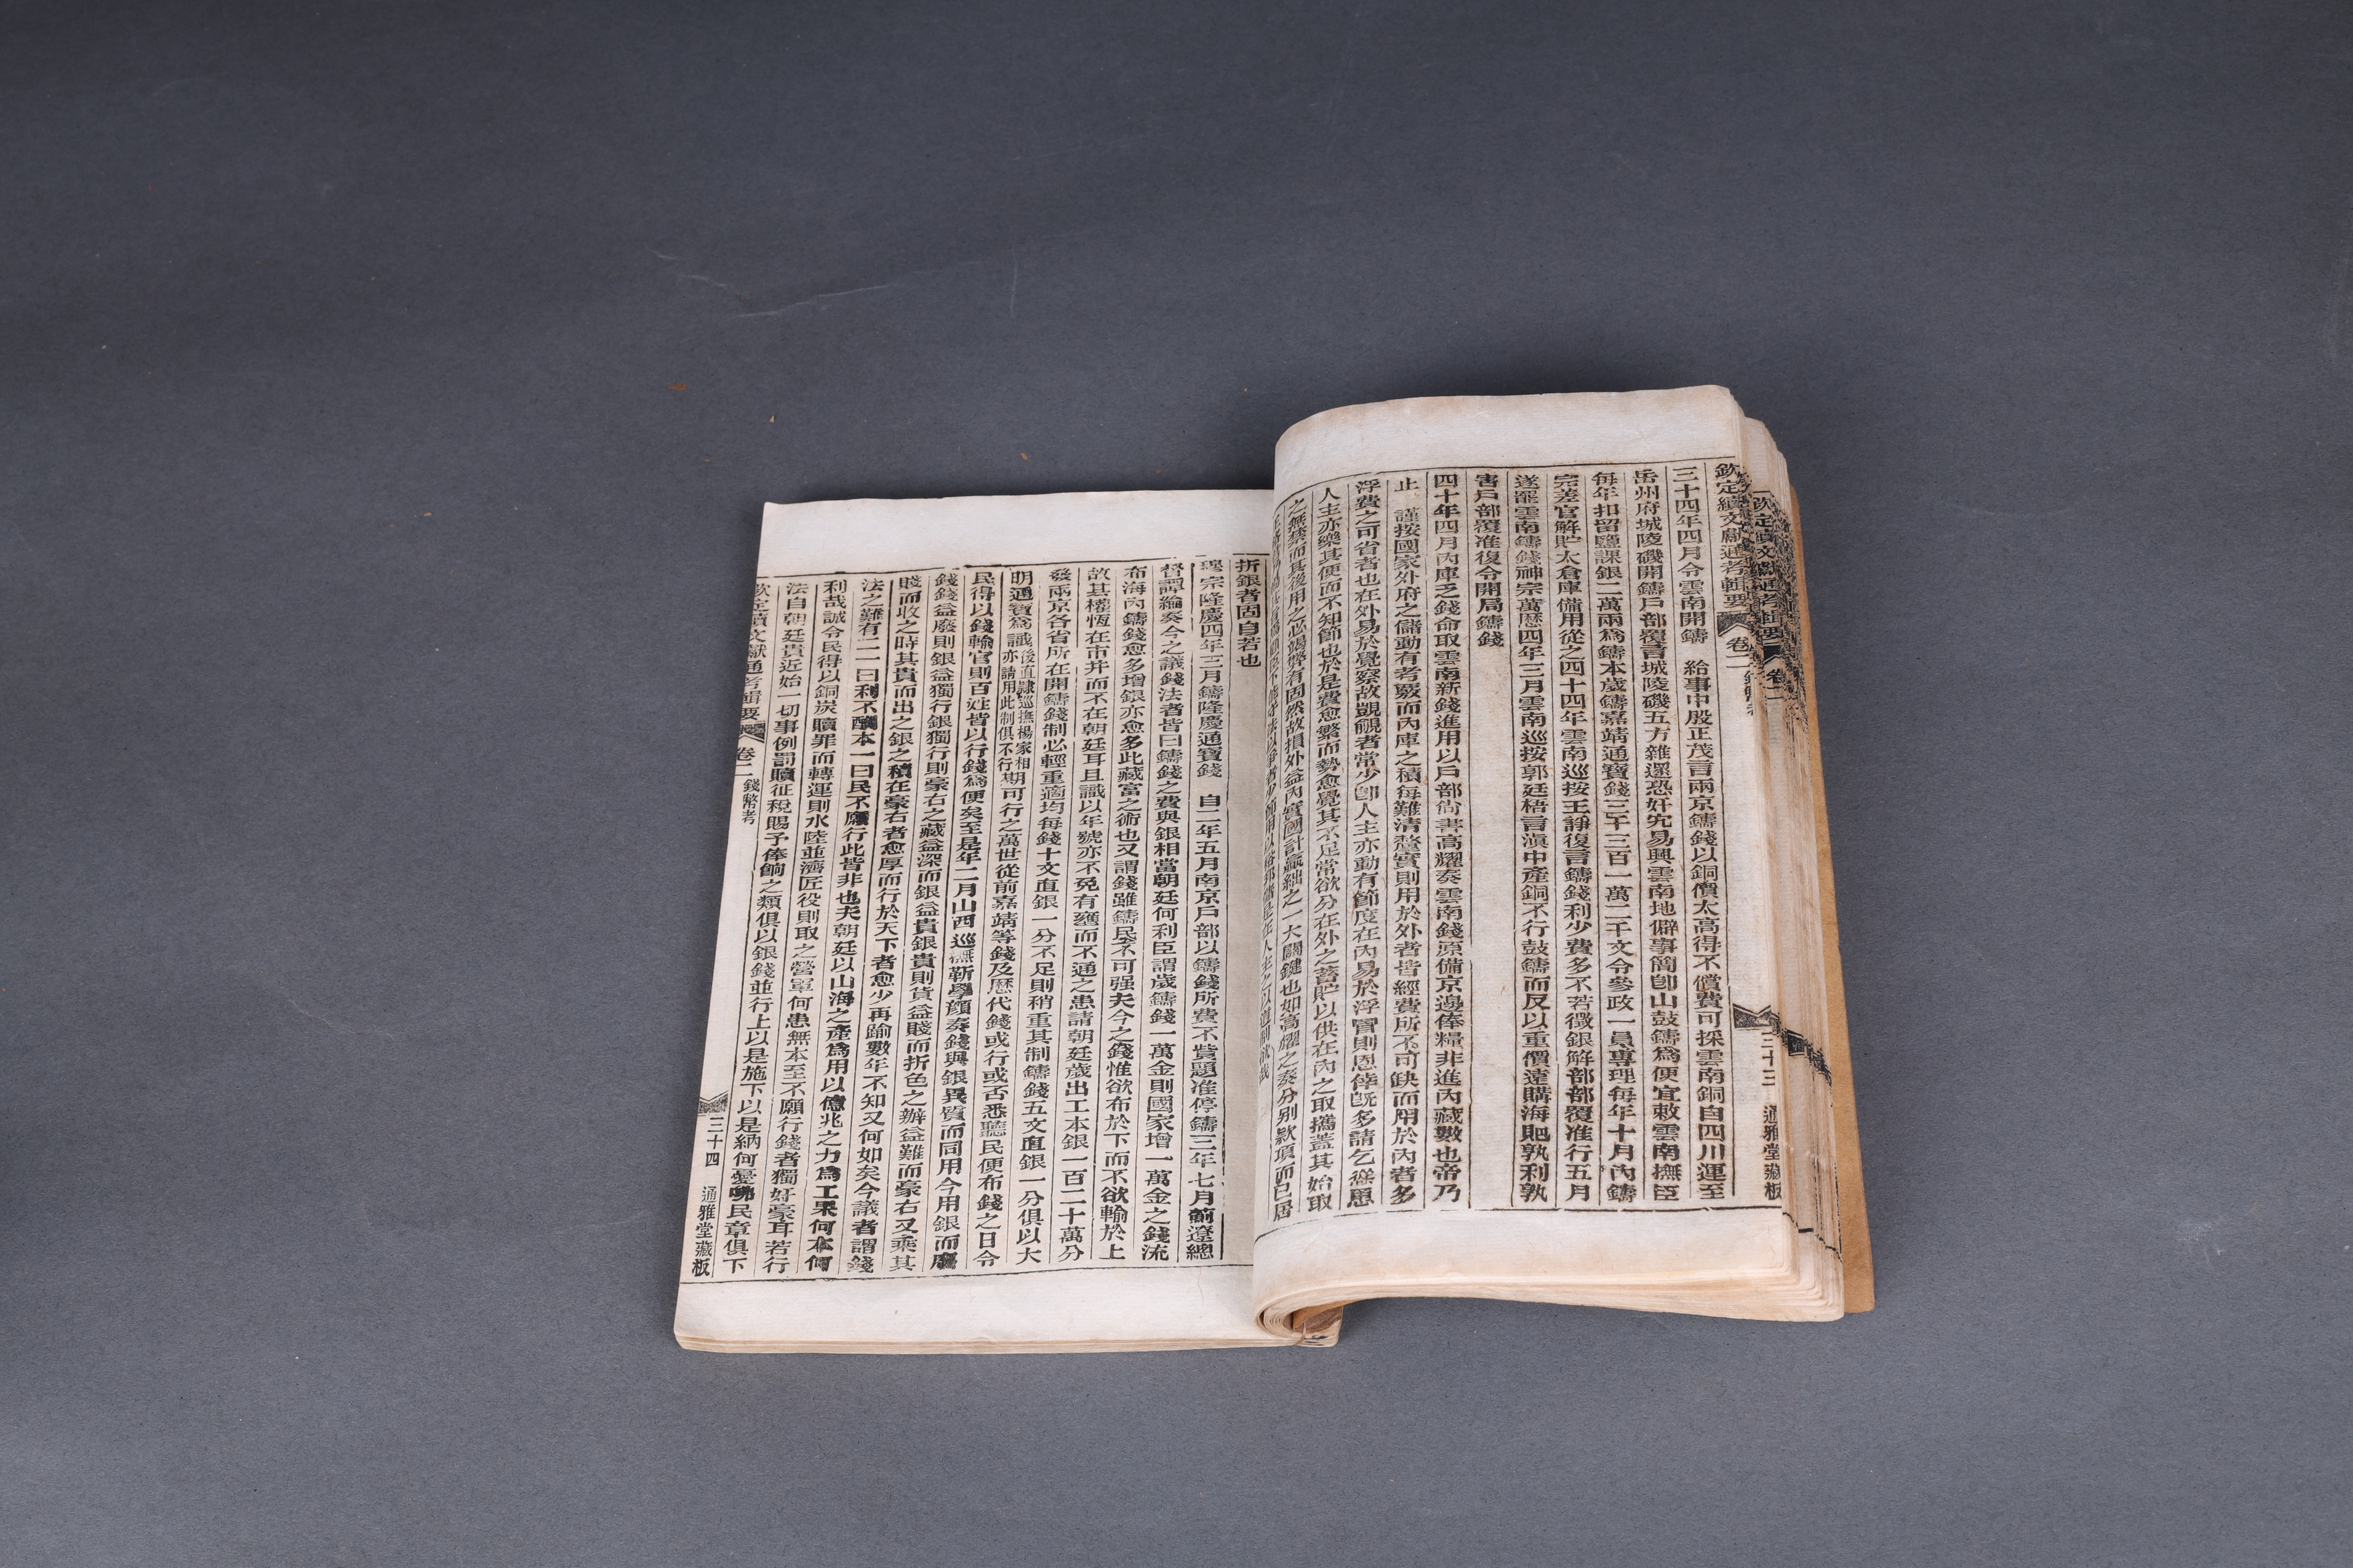 欽定續文獻通考輯要 卷二 三十三 通雅堂藏板
三十四年四月令雲南開鑄 給事中殷正茂言兩京鑄錢以銅價太高得不償費可採雲南銅自四川運至
岳州府城陵磯開鑄戶部覆言城陵磯五方雜遝恐奸宄易興雲南地僻事簡卽山鼓鑄爲便宜敕雲南撫臣
每年扣留鹽課銀二萬兩爲鑄本歲鑄嘉靖通寶錢三千三百一萬二千文令參政一員專理每年十月內鑄
完差官解貯太倉庫備用從之四十四年雲南巡按王諍復言鑄錢利少費多不若徵銀解部部覆准行五月
遂罷雲南鑄錢神宗萬曆四年三月雲南巡按郭廷梧言滇中產銅不行鼓鑄而反以重價遠購海𧴩孰利孰
害戶部覆准復令開局鑄錢
四十年四月內庫乏錢命取雲南新錢進用以戶部尙書高燿奏雲南錢原備京邊俸糧非進內藏數也帝乃
止 謹按國家外府之儲動有考覈而內庫之積每難淸釐實則用於外者皆經費所不可缺而用於內者多
浮費之可省者也在外易於覺察故覬覦者常少卽人主亦動有節度在內易於浮冒則恩倖旣多請乞滋恩
人主亦樂其便而不知節也於是費愈繁而勢愈覺其不足常欲分在外之蓄貯以供在內之取攜蓋其始取
之無禁而其後用之必竭勢有固然故損外益內實國計贏絀之一大關鍵也如高燿之奏分別款項而已居
折銀者固自若也
穆宗隆慶四年三月鑄隆慶通寶錢 自二年五月南京戶部以鑄錢所費不貲題准停鑄三年七月薊遼總
督譚綸奏今之議錢法者皆曰鑄錢之費與銀相當朝廷何利臣謂歲鑄錢一萬金則國家增一萬金之錢流
布海內鑄錢愈多增銀亦愈多此藏富之術也又謂錢雖鑄民不可强夫今之錢惟欲布於下而不欲輸於上
故其權恆在市井而不在朝廷耳且識以年號亦不免有壅而不通之患請朝廷歲出工本銀一百二十萬分
發兩京各省所在開鑄錢制必輕重適均每錢十文直銀一分不足則稍重其制鑄錢五文直銀一分俱以大
明通寶爲識後直隸巡撫楊家相亦請用此制俱不行期可行之萬世從前嘉靖等錢及歷代錢或行或否悉聽民便布錢之日令
民得以錢輸官則百姓皆以行錢爲便矣至是年二月山西巡撫靳學顏奏錢與銀異質而同用今用銀而廢
錢錢益廢則銀益獨行銀獨行則豪右之藏益深而銀益貴銀貴則貨益賤而折色之辦益難而豪右又乘其
賤而收之時其貴而出之銀之積在豪右者愈厚而行於天下者愈少再踰數年不知又何如矣今議者謂錢
法之難有二一曰利不酬本一曰民不願行此皆非也夫朝廷以山海之產爲用以億兆之力爲工果何本何
利哉誠令民得以銅炭贖罪而轉運則水陸並濟匠役則取之營軍何患無本至不願行錢者獨奸豪耳若行
法自朝廷貴近始一切事例罰贖征稅賜予俸餉之類俱以銀錢並行上以是施下以是納何憂哪民章俱下
欽定續文獻通考輯要 卷二 錢幣考 三十四 通雅堂藏板